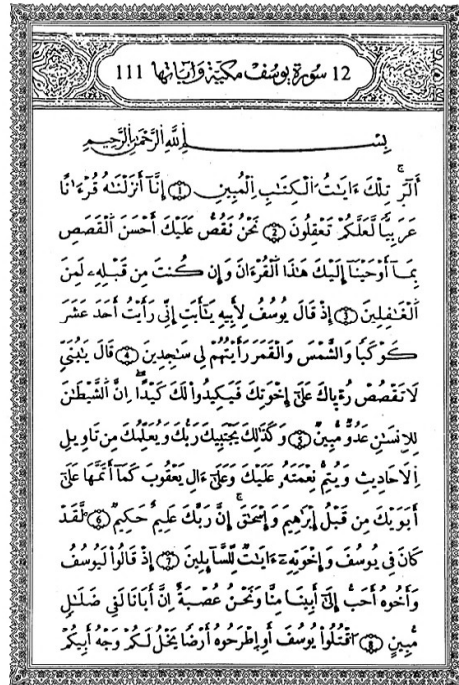 12 سورة يوسف مكية وآياتها 111
بِسْمِ اِللَّهِ اِلرَّحْمَٰنِ اِلرَّحِيمِ
أَلَٓرَۚ تِلْكَ ءَايَٰتُ اُلْكِتَٰبِ اِلْمُبِينِ (1) إِنَّآ أَنزَلْنَٰهُ قُرْءَٰنًا
عَرَبِيًّا لَّعَلَّكُمْ تَعْقِلُونَ (2) نَحْنُ نَقُصُّ عَلَيْكَ أَحْسَنَ اَلْقَصَصِ
بِمَآ أَوْحَيْنَآ إِلَيْكَ هَٰذَا اَلْقُرْءَانَ وَإِن كُنتَ مِن قَبْلِهِۦ لَمِنَ
اَلْغَٰفِلِينَ (3) إِذْ قَالَ يُوسُفُ لِأَبِيهِ يَٰٓأَبَتِ إِنِّي رَأَيْتُ أَحَدَ عَشَرَ
كَوْكَبًا وَالشَّمْسَ وَالْقَمَرَ رَأَيْتُهُمْ لِي سَٰجِدِينَ (4) قَالَ يَٰبُنَيِّ
لَا تَقْصُصْ رُءْيَاكَ عَلَىٰٓ إِخْوَتِكَ فَيَكِيدُوا لَكَ كَيْدًاۖ اِنَّ اَلشَّيْطَٰنَ
لِلِانسَٰنِ عَدُوٌّ مُّبِينٌ (5) وَكَذَٰلِكَ يَجْتَبِيكَ رَبُّكَ وَيُعَلِّمُكَ مِن تَاوِيلِ
اِلَاحَادِيثِ وَيُتِمُّ نِعْمَتَهُۥ عَلَيْكَ وَعَلَىٰٓ ءَالِ يَعْقُوبَ كَمَآ أَتَمَّهَا عَلَىٰٓ
أَبَوَيْكَ مِن قَبْلُ إِبْرَٰهِيمَ وَإِسْحَٰقَۚ إِنَّ رَبَّكَ عَلِيمٌ حَكِيمٌ (6) لَّقَدْ
كَانَ فِي يُوسُفَ وَإِخْوَتِهِۦٓ ءَايَٰتٌ لِّلسَّآئِلِينَ (7) إِذْ قَالُوا لَيُوسُفُ
وَأَخُوهُ أَحَبُّ إِلَىٰٓ أَبِينَا مِنَّا وَنَحْنُ عُصْبَةٌ اِنَّ أَبَانَا لَفِي ضَلَٰلٍ
مُّبِينٍ (8) اُقْتُلُوا يُوسُفَ أَوِ اِطْرَحُوهُ أَرْضًا يَخْلُ لَكُمْ وَجْهُ أَبِيكُمْ